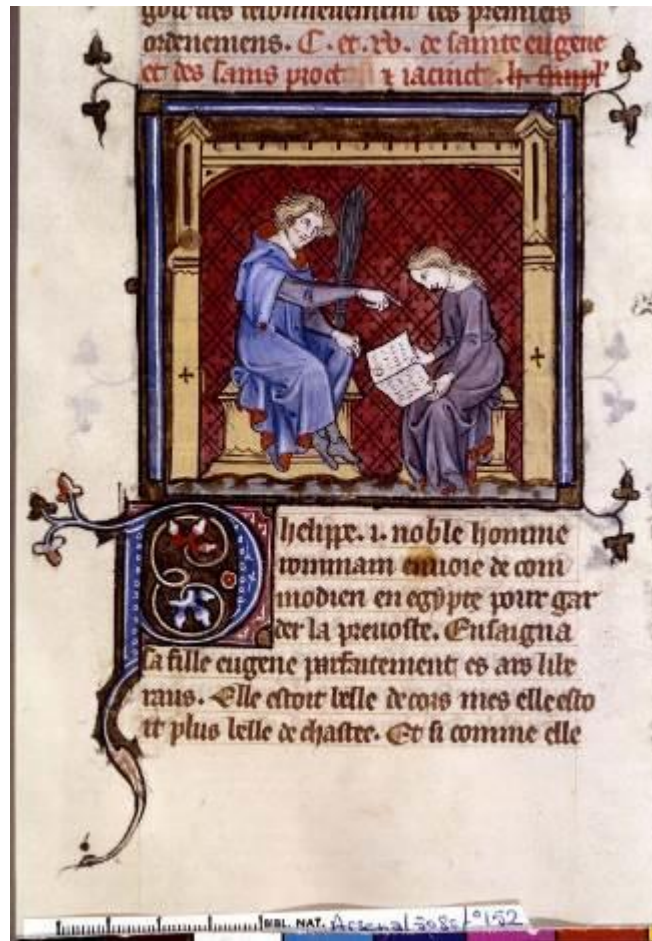 gou des lesonnenement des premiers
ordenemens. C. et. xv. de sainte eugene
et des sains proct & iacinct.
Phelipe .i. noble homme
rommain enuoie de com
modien en egypte pour gar
der la preuoste. Ensaigna
sa fille eugene parfaitement es ars libe
raus. Elle estoit belle de cors mes elle esto
it plus belle de chastee. Et si comme elle
BIBL. NAT. Arsenal 5080 fº 152